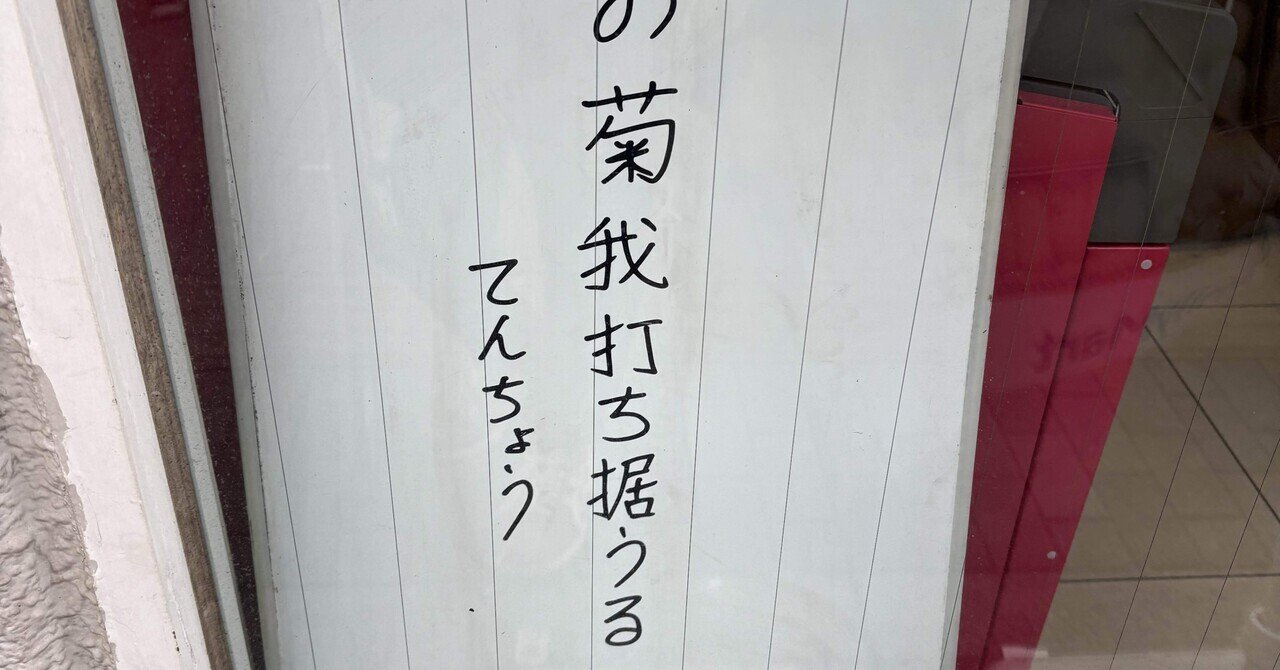 の菊我打ち据うる
てんちょう